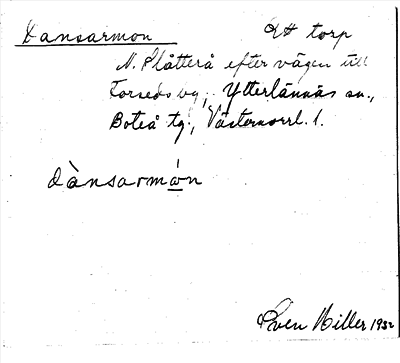 Dansarmon Ett torp
N. Flätterå efter vägen till
Forseds by, Ytterlännäs sn.,
Boteå tg., Västernorrl. l.
dànsarmón
Sven Hiller 1932